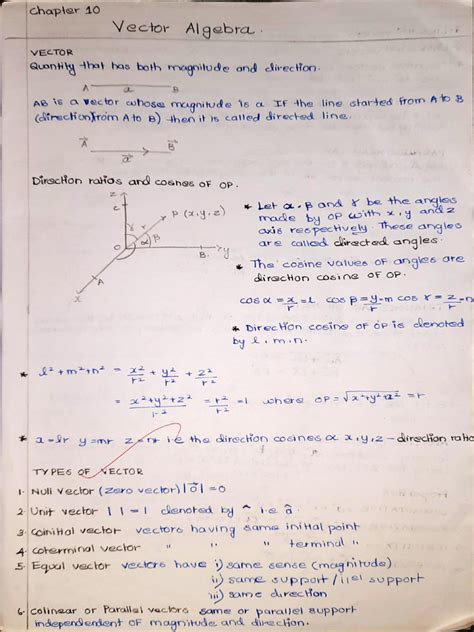 Chapter 10
Vector Algebra.
VECTOR
Quantity that has both magnitude and direction.
A a B
AB is a vector whose magnitude is a. IF the line started from A to B
(direction from A to B) then it is called directed line.
A⃗ B⃗
a⃗
Direction ratios and cosines OF OP.
z
c
P (x,y,z)
γ r β
α
O B. y
A
X
* Let α, β and γ be the angles
made by OP with x, y and z
axis respectively. These angles
are called directed angles.
* The cosine values of angles are
direction cosine of OP.
cos α = x/r = l cos β = y/r = m cos γ = z/r = n
* Direction cosine of OP is denoted
by l, m, n.
* l² + m² + n² = x²/r² + y²/r² + z²/r²
= x²+y²+z²/r² = r²/r² = 1 where OP = √x²+y²+z² = r
* x = lr y = mr z = nr i.e the direction cosines ∝ x, y, z - direction ratio
TYPES OF VECTOR
1. Null vector (zero vector) |0⃗| = 0
2. Unit vector | | = 1 denoted by ^ i.e â.
3. Coinitial vector vectors having same initial point
4. Coterminal vector " " " terminal "
5. Equal vector vectors have i) same sense (magnitude)
ii) same support / ||el support
iii) same direction
6. Colinear or Parallel vectors same or parallel support
independent of magnitude and direction.